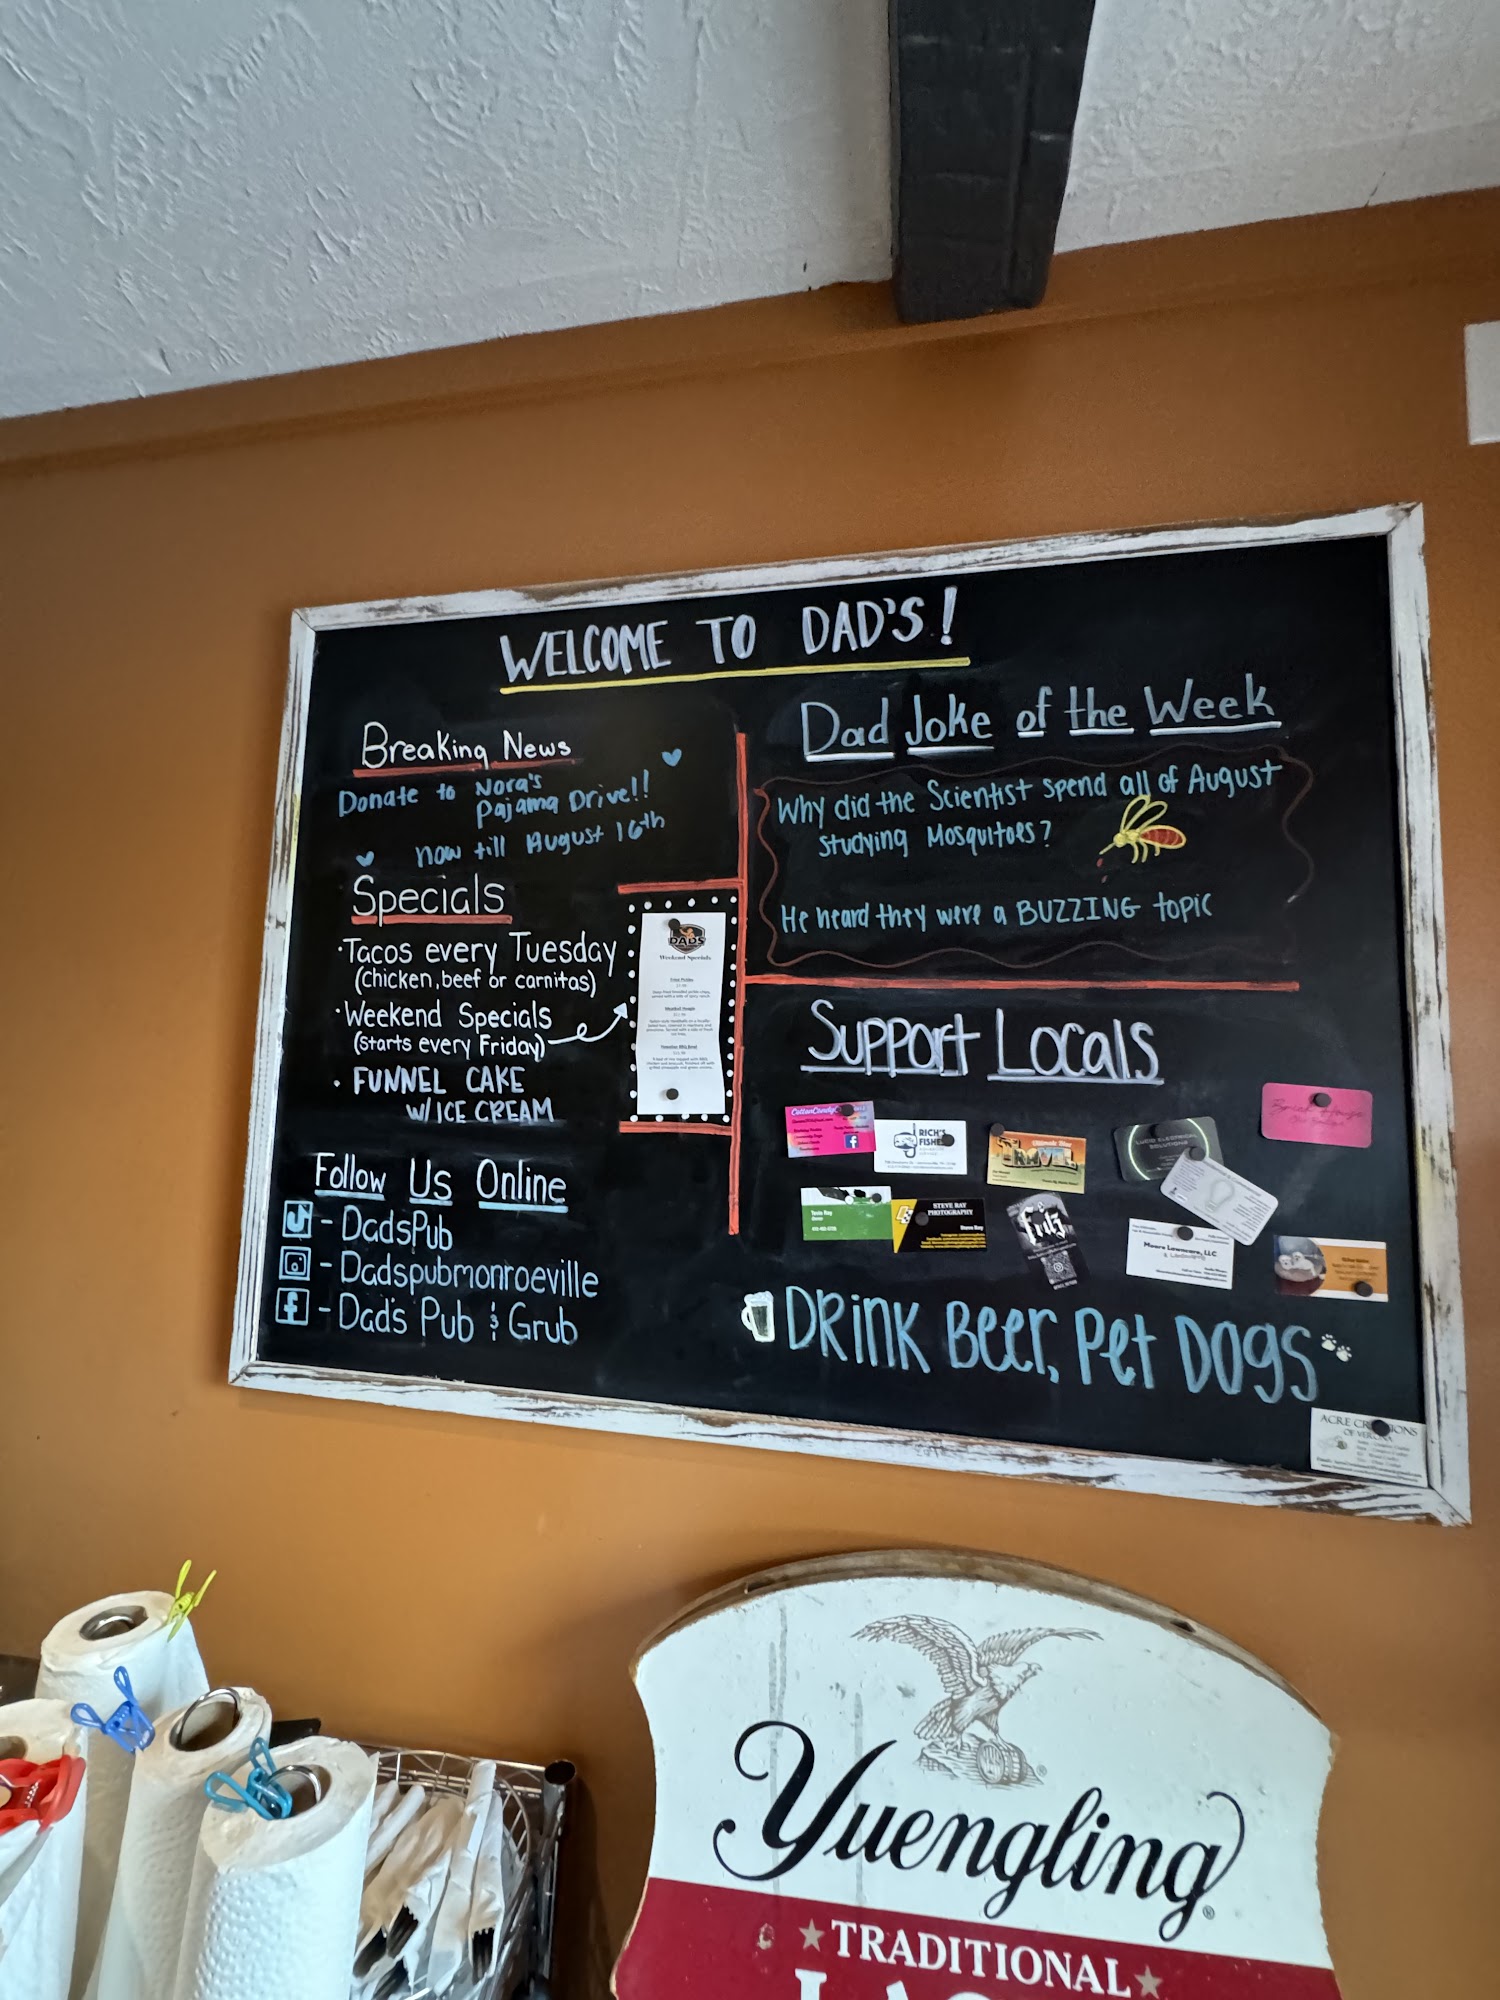 WELCOME TO DAD'S!
Breaking News
Donate to Nora's
Pajama Drive!!
now till August 16th
Specials
· Tacos every Tuesday
(chicken, beef or carnitas)
· Weekend Specials
(starts every Friday)
· FUNNEL CAKE
W/ ICE CREAM
DADS
Weekend Specials
Follow Us Online
- DadsPub
- Dadspubmonroeville
- Dad's Pub & Grub
Dad Joke of the Week
Why did the Scientist spend all of August
studying Mosquitoes?
He heard they were a BUZZING topic
Support Locals
RICH'S
Ultimate Bliss
TRAVEL
LUCID ELECTRICAL
SOLUTIONS
STEVE RAY
PHOTOGRAPHY
Steve Ray
Moore Lawncare, LLC
DRINK Beer, Pet DOGS
OF VERONA
Yuengling®
TRADITIONAL